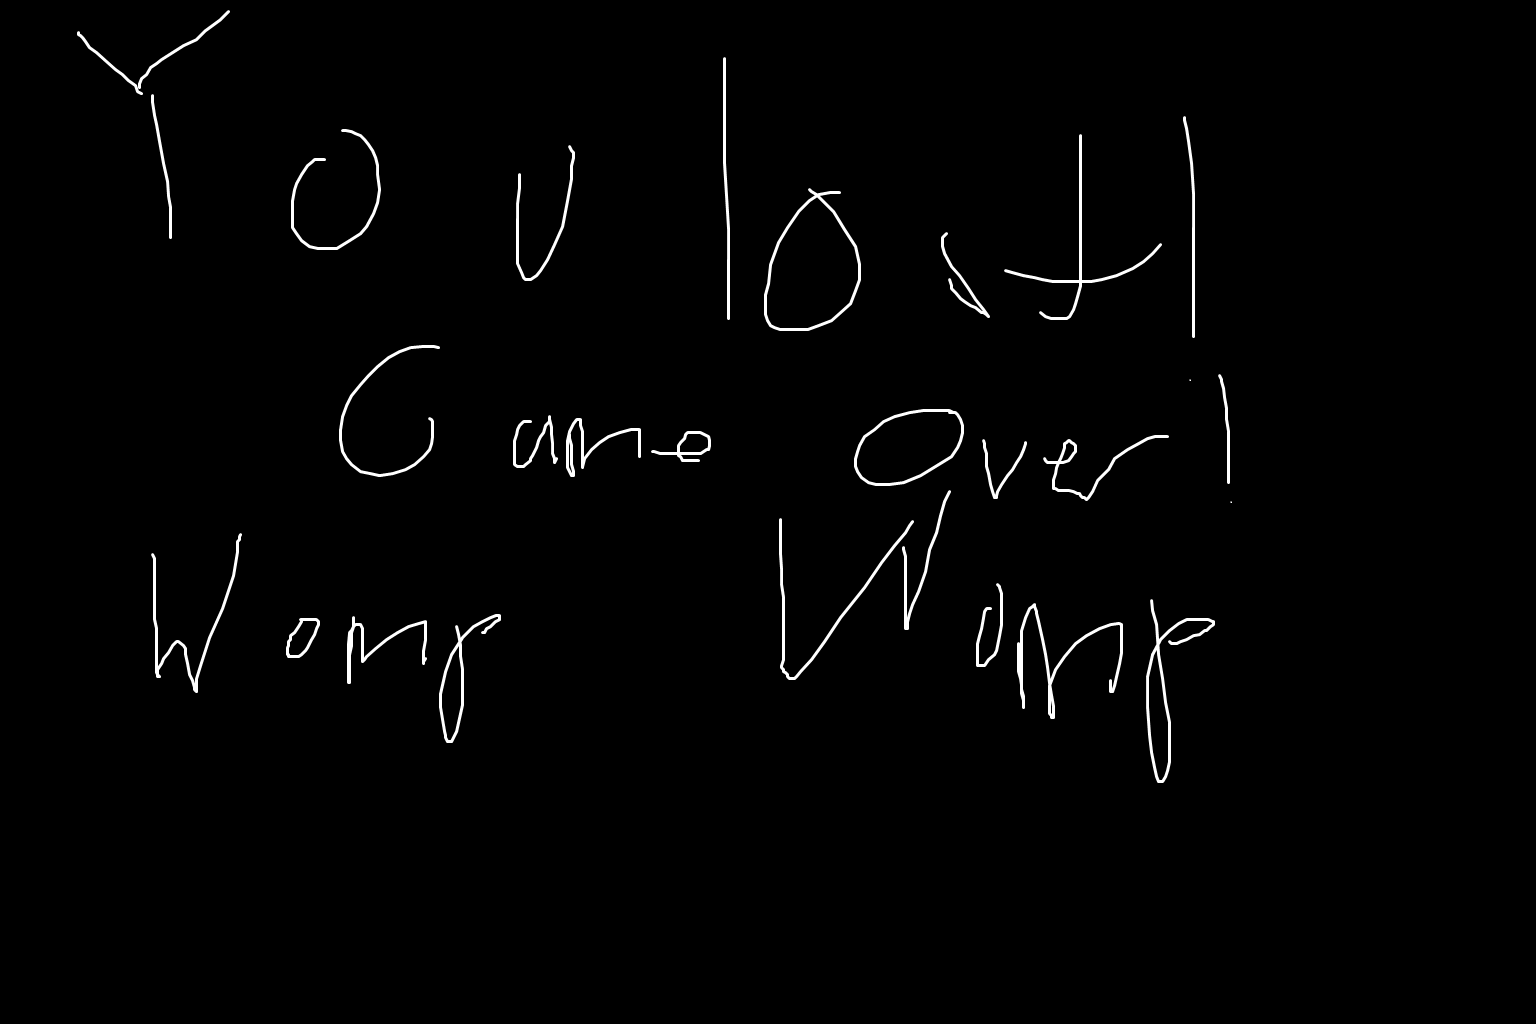 You lost!
Game Over!
Womp Womp